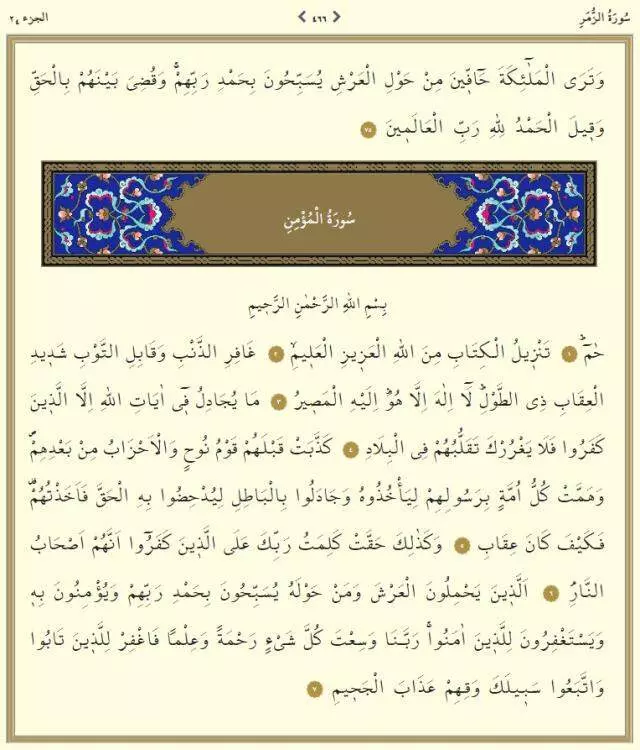 سُورَةُ الزُّمَرِ ٤٦٦ الجزء ٢٤
وَتَرَى الْمَلٰٓئِكَةَ حَٓافّ۪ينَ مِنْ حَوْلِ الْعَرْشِ يُسَبِّحُونَ بِحَمْدِ رَبِّهِمْۚ وَقُضِىَ بَيْنَهُمْ بِالْحَقِّ
وَق۪يلَ الْحَمْدُ لِلّٰهِ رَبِّ الْعَالَم۪ينَ ٧٥
سُورَةُ الْمُؤْمِنِ
بِسْمِ اللّٰهِ الرَّحْمٰنِ الرَّح۪يمِ
حٰمٓۜ ١ تَنْز۪يلُ الْكِتَابِ مِنَ اللّٰهِ الْعَز۪يزِ الْعَل۪يمِۙ ٢ غَافِرِ الذَّنْبِ وَقَابِلِ التَّوْبِ شَد۪يدِ
الْعِقَابِ ذِى الطَّوْلِۜ لَٓا اِلٰهَ اِلَّا هُوَۜ اِلَيْهِ الْمَص۪يرُ ٣ مَا يُجَادِلُ ف۪ٓى اٰيَاتِ اللّٰهِ اِلَّا الَّذ۪ينَ
كَفَرُوا فَلَا يَغْرُرْكَ تَقَلُّبُهُمْ فِى الْبِلَادِ ٤ كَذَّبَتْ قَبْلَهُمْ قَوْمُ نُوحٍ وَالْاَحْزَابُ مِنْ بَعْدِهِمْۖ
وَهَمَّتْ كُلُّ اُمَّةٍ بِرَسُولِهِمْ لِيَأْخُذُوهُ وَجَادَلُوا بِالْبَاطِلِ لِيُدْحِضُوا بِهِ الْحَقَّ فَاَخَذْتُهُمْ۠
فَكَيْفَ كَانَ عِقَابِ ٥ وَكَذٰلِكَ حَقَّتْ كَلِمَتُ رَبِّكَ عَلَى الَّذ۪ينَ كَفَرُٓوا اَنَّهُمْ اَصْحَابُ
النَّارِۢ ٦ اَلَّذ۪ينَ يَحْمِلُونَ الْعَرْشَ وَمَنْ حَوْلَهُ يُسَبِّحُونَ بِحَمْدِ رَبِّهِمْ وَيُؤْمِنُونَ بِه۪
وَيَسْتَغْفِرُونَ لِلَّذ۪ينَ اٰمَنُواۚ رَبَّنَا وَسِعْتَ كُلَّ شَىْءٍ رَحْمَةً وَعِلْمًا فَاغْفِرْ لِلَّذ۪ينَ تَابُوا
وَاتَّبَعُوا سَب۪يلَكَ وَقِهِمْ عَذَابَ الْجَح۪يمِ ٧